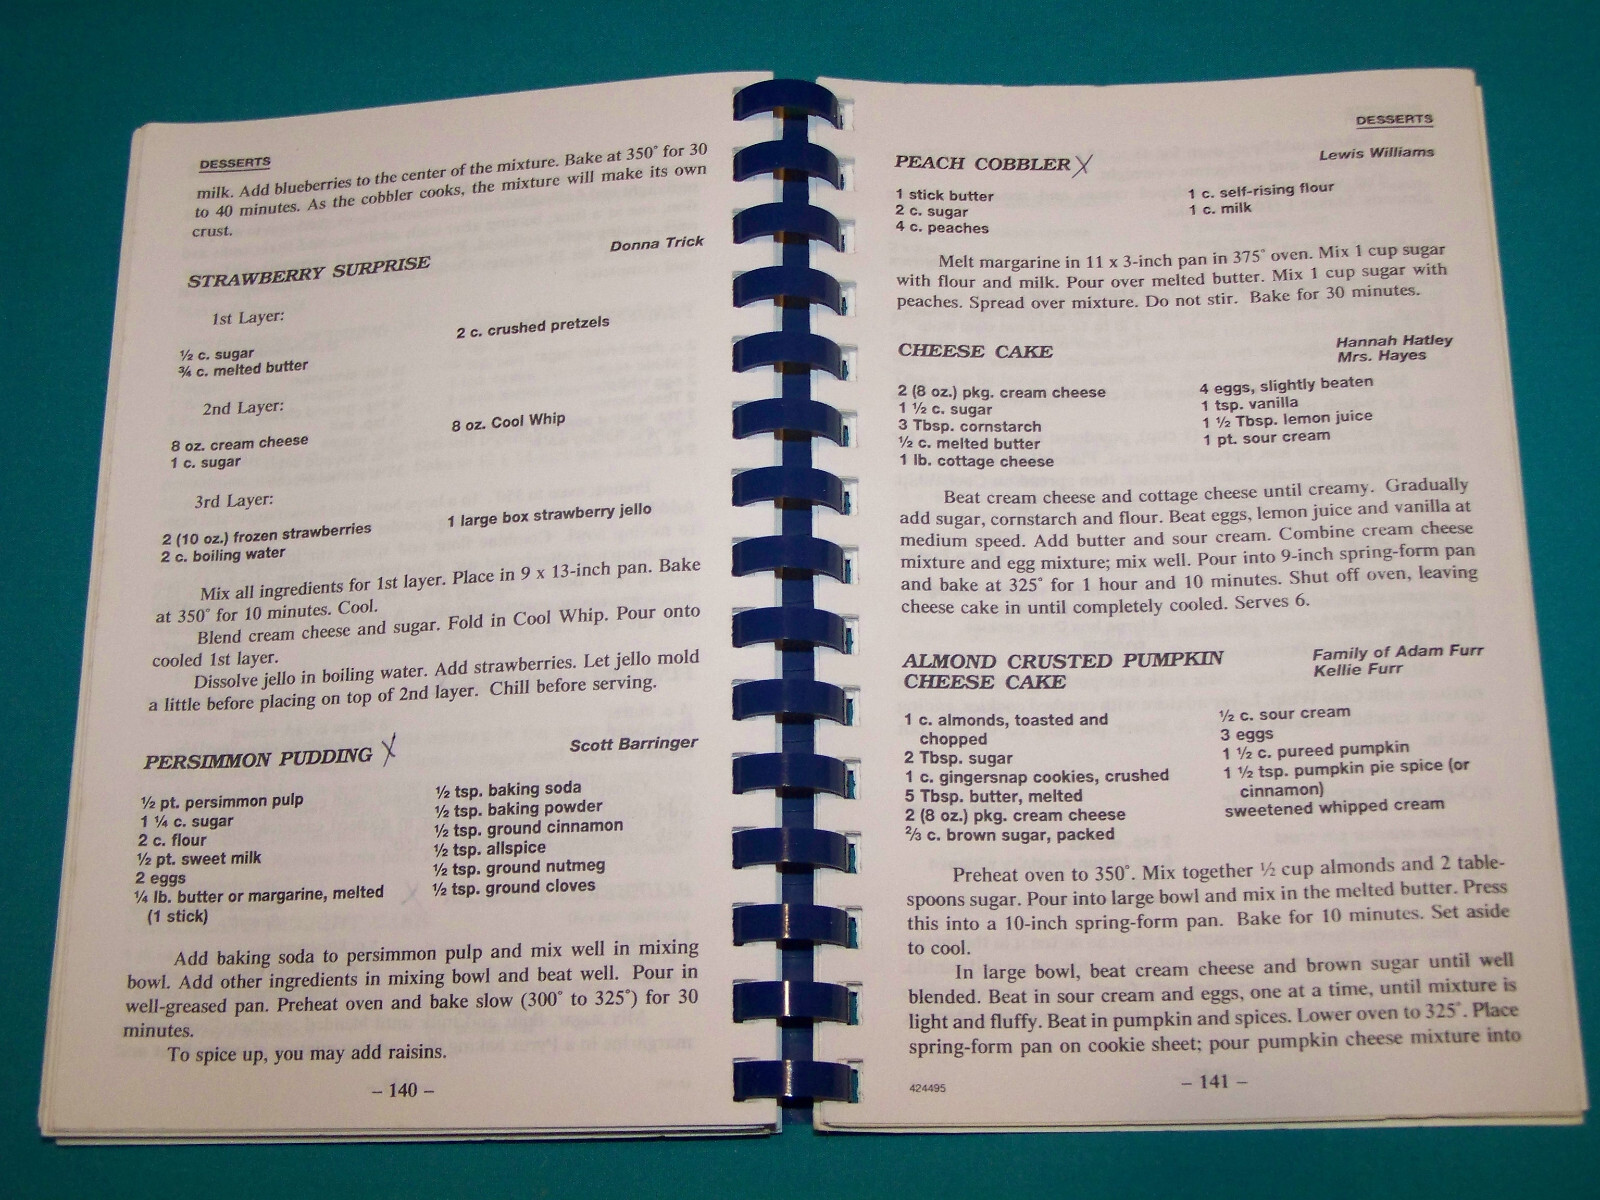 DESSERTS
milk. Add blueberries to the center of the mixture. Bake at 350° for 30
to 40 minutes. As the cobbler cooks, the mixture will make its own
crust.
Donna Trick
STRAWBERRY SURPRISE
1st Layer:
½ c. sugar
¾ c. melted butter
2 c. crushed pretzels
2nd Layer:
8 oz. cream cheese
1 c. sugar
8 oz. Cool Whip
3rd Layer:
2 (10 oz.) frozen strawberries
2 c. boiling water
1 large box strawberry jello
Mix all ingredients for 1st layer. Place in 9 x 13-inch pan. Bake
at 350° for 10 minutes. Cool.
Blend cream cheese and sugar. Fold in Cool Whip. Pour onto
cooled 1st layer.
Dissolve jello in boiling water. Add strawberries. Let jello mold
a little before placing on top of 2nd layer. Chill before serving.
PERSIMMON PUDDING X
Scott Barringer
½ pt. persimmon pulp
1 ¼ c. sugar
2 c. flour
½ pt. sweet milk
2 eggs
¼ lb. butter or margarine, melted
(1 stick)
½ tsp. baking soda
½ tsp. baking powder
½ tsp. ground cinnamon
½ tsp. allspice
½ tsp. ground nutmeg
½ tsp. ground cloves
Add baking soda to persimmon pulp and mix well in mixing
bowl. Add other ingredients in mixing bowl and beat well. Pour in
well-greased pan. Preheat oven and bake slow (300° to 325°) for 30
minutes.
To spice up, you may add raisins.
– 140 –
DESSERTS
PEACH COBBLER X
Lewis Williams
1 stick butter
2 c. sugar
4 c. peaches
1 c. self-rising flour
1 c. milk
Melt margarine in 11 x 3-inch pan in 375° oven. Mix 1 cup sugar
with flour and milk. Pour over melted butter. Mix 1 cup sugar with
peaches. Spread over mixture. Do not stir. Bake for 30 minutes.
CHEESE CAKE
Hannah Hatley
Mrs. Hayes
2 (8 oz.) pkg. cream cheese
1 ½ c. sugar
3 Tbsp. cornstarch
½ c. melted butter
1 lb. cottage cheese
4 eggs, slightly beaten
1 tsp. vanilla
1 ½ Tbsp. lemon juice
1 pt. sour cream
Beat cream cheese and cottage cheese until creamy. Gradually
add sugar, cornstarch and flour. Beat eggs, lemon juice and vanilla at
medium speed. Add butter and sour cream. Combine cream cheese
mixture and egg mixture; mix well. Pour into 9-inch spring-form pan
and bake at 325° for 1 hour and 10 minutes. Shut off oven, leaving
cheese cake in until completely cooled. Serves 6.
ALMOND CRUSTED PUMPKIN
CHEESE CAKE
Family of Adam Furr
Kellie Furr
1 c. almonds, toasted and
chopped
2 Tbsp. sugar
1 c. gingersnap cookies, crushed
5 Tbsp. butter, melted
2 (8 oz.) pkg. cream cheese
⅔ c. brown sugar, packed
½ c. sour cream
3 eggs
1 ½ c. pureed pumpkin
1 ½ tsp. pumpkin pie spice (or
cinnamon)
sweetened whipped cream
Preheat oven to 350°. Mix together ½ cup almonds and 2 table-
spoons sugar. Pour into large bowl and mix in the melted butter. Press
this into a 10-inch spring-form pan. Bake for 10 minutes. Set aside
to cool.
In large bowl, beat cream cheese and brown sugar until well
blended. Beat in sour cream and eggs, one at a time, until mixture is
light and fluffy. Beat in pumpkin and spices. Lower oven to 325°. Place
spring-form pan on cookie sheet; pour pumpkin cheese mixture into
424495
– 141 –